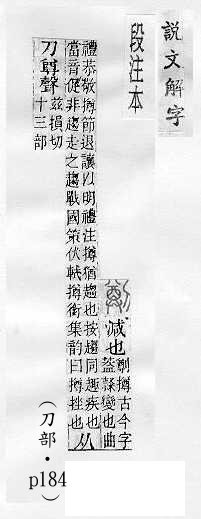 說文解字
段注本
減也
㔌撙古今字
蓋隸變也曲
禮恭敬撙節退讓以明禮注撙猶趨也按趨同趣疾也
當音促非趨走之趨戰國策伏軾撙銜集韵曰撙挫也
从
刀尊聲
茲損切
十三部
(刀部・p184)